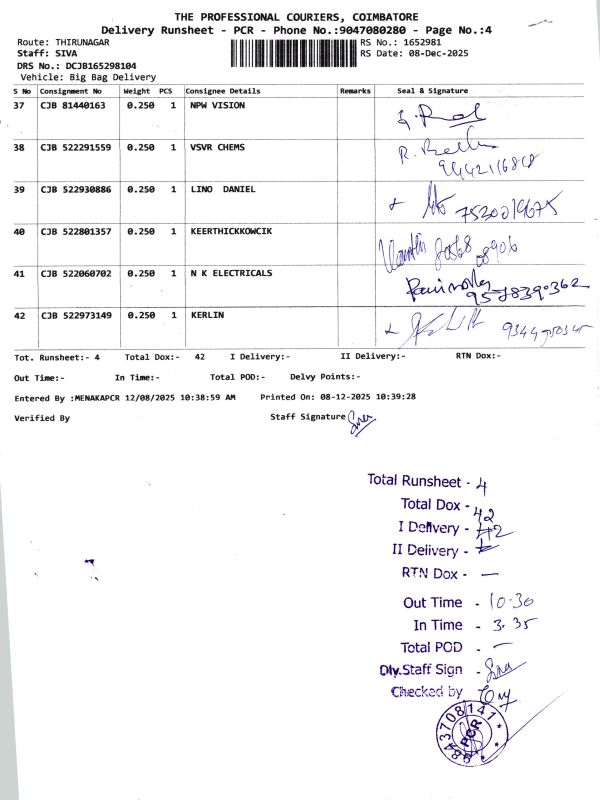 THE PROFESSIONAL COURIERS, COIMBATORE
Delivery Runsheet - PCR - Phone No.:9047080280 - Page No.:4
Route: THIRUNAGAR RS No.: 1652981
Staff: SIVA RS Date: 08-Dec-2025
DRS No.: DCJB165298104
Vehicle: Big Bag Delivery
S No Consignment No Weight PCS Consignee Details Remarks Seal & Signature
37 CJB 81440163 0.250 1 NPW VISION
38 CJB 522291559 0.250 1 VSVR CHEMS
39 CJB 522930886 0.250 1 LINO DANIEL
40 CJB 522801357 0.250 1 KEERTHICKKOWCIK
41 CJB 522060702 0.250 1 N K ELECTRICALS
42 CJB 522973149 0.250 1 KERLIN
Tot. Runsheet:- 4 Total Dox:- 42 I Delivery:- II Delivery:- RTN Dox:-
Out Time:- In Time:- Total POD:- Delvy Points:-
Entered By :MENAKAPCR 12/08/2025 10:38:59 AM Printed On: 08-12-2025 10:39:28
Verified By Staff Signature
Total Runsheet - 4
Total Dox - 42
I Delivery - 42
II Delivery -
RTN Dox - —
Out Time - 10-30
In Time - 3.35
Total POD - —
Dlv.Staff Sign -
Checked by
9843708141
PCR